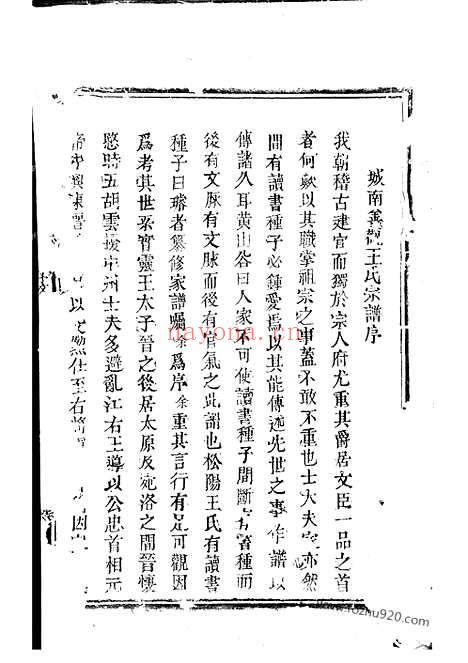 城南善觀王氏宗譜序
我朝稽古建官而獨於宗人府尤重其爵居文臣一品之首
者何歟以其職掌祖宗之事蓋不敢不重也士大夫家亦然
間有讀書種子必鍾愛焉以其能傳述先世之事作譜以
傳諸久耳黃山谷曰人家不可使讀書種子間斷有書種而
後有文脉有文脉而後有官氣之此謂也松陽王氏有讀書
種子曰璿者纂修家譜囑徐爲序徐重其言行有足可觀因
爲考其世系實靈王太子晉之後居太原及宛洛之間晉懷
愍時五胡雲擾中州士夫多避亂江右王導以公忠首相元
帝中興東晉 以 勲仕至右將 因
nayona.cn
www.rozhu920.com